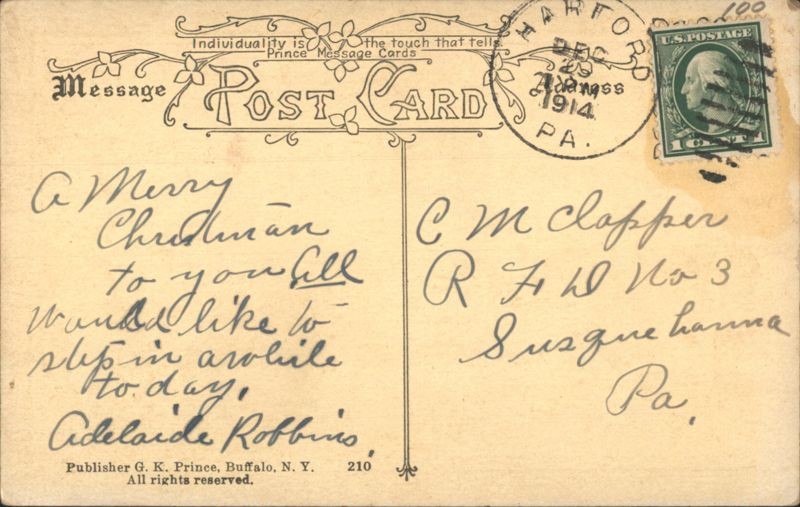 100
Individuality is the touch that tells
Prince Message Cards
Message
POST CARD
Address
HARFORD
DEC
29
1914
PA.
U.S. POSTAGE
1 CENT 1
A Merry
Christman
to you All
would like to
step in awhile
to day,
Adelaide Robbins,
C M Clapper
R F D No 3
Susquehanna
Pa,
Publisher G. K. Prince, Buffalo, N. Y. 210
All rights reserved.